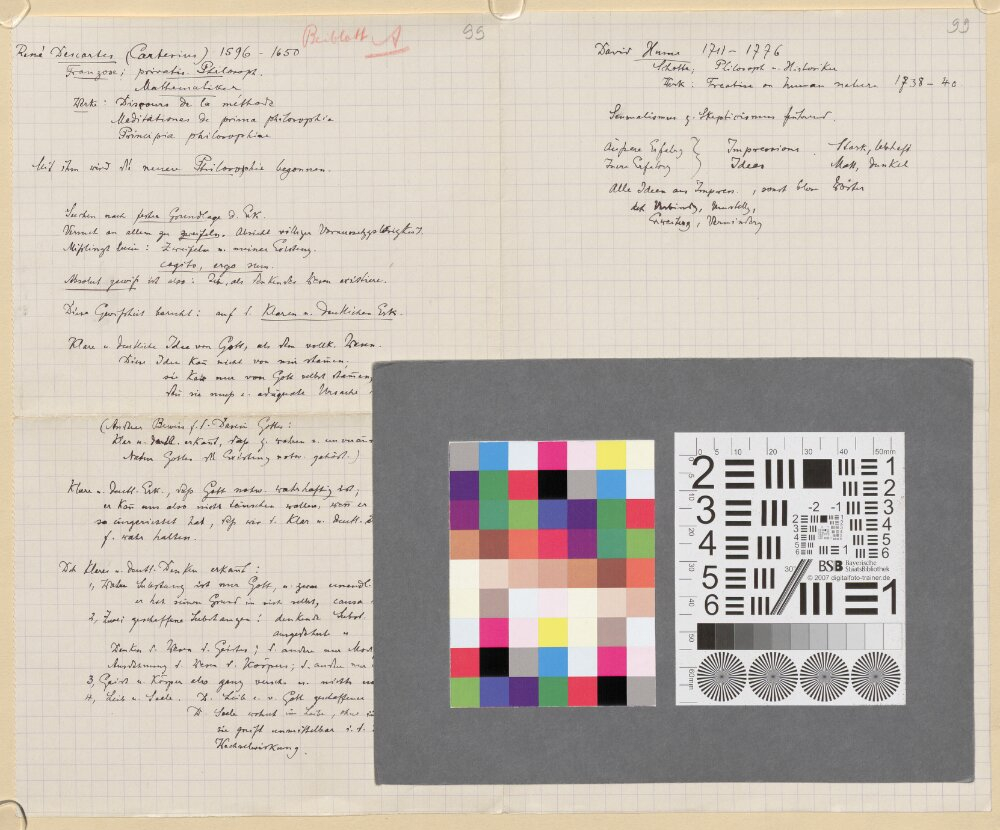 Beiblatt A
99
99
René Descartes (Cartesius) 1596 - 1650
Franzose; privatis. Philosoph.
Mathematiker
Werke: Discours de la méthode
Meditationes de prima philosophia
Principia philosophiae
Mit ihm wird die neuere Philosophie begonnen.
Suchen nach fester Grundlage d. Erk.
Versuch an allem zu zweifeln. Absicht völliger Voraussetzgslosigkeit.
Mißlingt beim: Zweifeln a. meiner Existenz.
cogito, ergo sum.
Absolut gewiß ist also: Ich, als denkendes Wesen existiere.
Diese Gewißheit beruht: auf d. Klaren u. deutlichen Erk.
Klare u. deutliche Idee von Gott, als dem vollk. Wesen.
Diese Idee kañ nicht von mir stam̄en,
sie kañ nur von Gott selbst stam̄en,
da sie muß e. adäquate Ursache
(Anderer Beweis f. d. Dasein Gottes:
Klar u. deutl. erkañt, daß z. wahren u.
Natur Gottes die Existenz notw. gehört.)
Klare u. deutl. Erk., daß Gott notw. wahrhaftig ist;
er kañ uns also nicht täuschen wollen, wenn er
so eingerichtet hat, daß wir d. Klar u. deutl.
f. wahr halten.
Die klares u. deutl. Denken erkañt:
1, Wahre Substanz ist nur Gott, u. zwar unendl.
er hat seinen Grund in sich selbst, causa
2, Zwei geschaffene Substanzen: denkende Subst.
ausgedehnte "
Denken d. Wesen d. Geistes; d. andre nur
Ausdehnung d. Wesen d. Körpers; d. andre nur
3, Geist u. Körper also ganz versch. u. nichts
4, Leib u. Seele. D. Leib e. v. Gott geschaffene
D. Seele wohnt im Leibe, ohne
sie greift unmittelbar i. d.
Wechselwirkung.
David Hume 1711 - 1776
Schotte; Philosoph u. Historiker
Werk: Treatise on human nature 1738 - 40
Sensualismus z. Skeptizismus führend.
Äußere Erfahrg } Impressions. Stark, lebhaft
Innere Erfahrg } Ideas Matt, dunkel
Alle Ideen aus Impress., sonst bloss Wörter
dch Verbindg, Umstellg,
Erweiterg, Vermindrg
0 10 20 30 40 50mm
10
20
30
40
50
60mm
2 1
3 2
4 3
5 4
6 5
6
-2 -1
2 1
3 2
4 3
5 4
6 5
6
1
BSB Bayerische
StaatsBibliothek
© 2007 digitalfoto-trainer.de
1